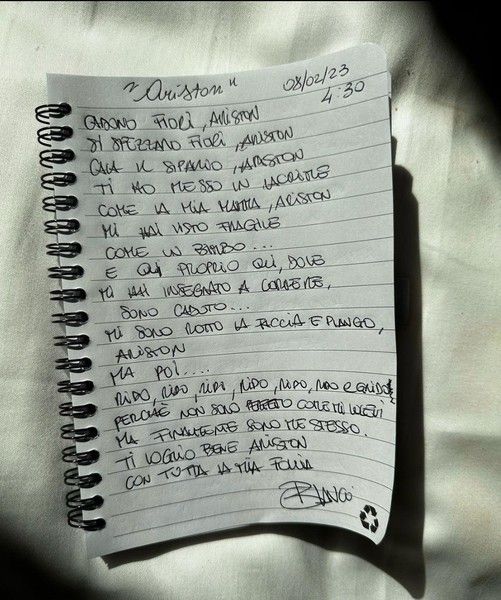 "Ariston"
08/02/23
4:30
CADONO FIORI, ARISTON
SI SPEZZANO FIORI, ARISTON
CALA IL SIPARIO, ARISTON
TI HO MESSO IN LACRIME
COME LA MIA MAMMA, ARISTON
MI HAI VISTO FRAGILE
COME UN BIMBO...
E QUI PROPRIO QUI, DOVE
MI HAI INSEGNATO A CORRERE,
SONO CADUTO...
MI SONO ROTTO LA FACCIA E PIANGO,
ARISTON
MA POI....
RIDO, RIDO, RIDO, RIDO, RIDO, RIDO E GRIDO
PERCHÈ NON SONO PERFETTO COME MI VOLEVI
MA FINALMENTE SONO ME STESSO.
TI VOGLIO BENE ARISTON
CON TUTTA LA MIA FOLLIA